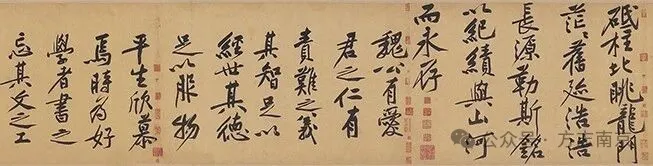 砥柱北眺龍門
茫〻舊跡浩浩
長源勒斯銘
以紀績與山河
而永存
魏公有愛
君之仁有
責難之義
其智足以
經世其德
足以服物
平生欣慕
焉時為好
學者書之
忘其文之工
公众号